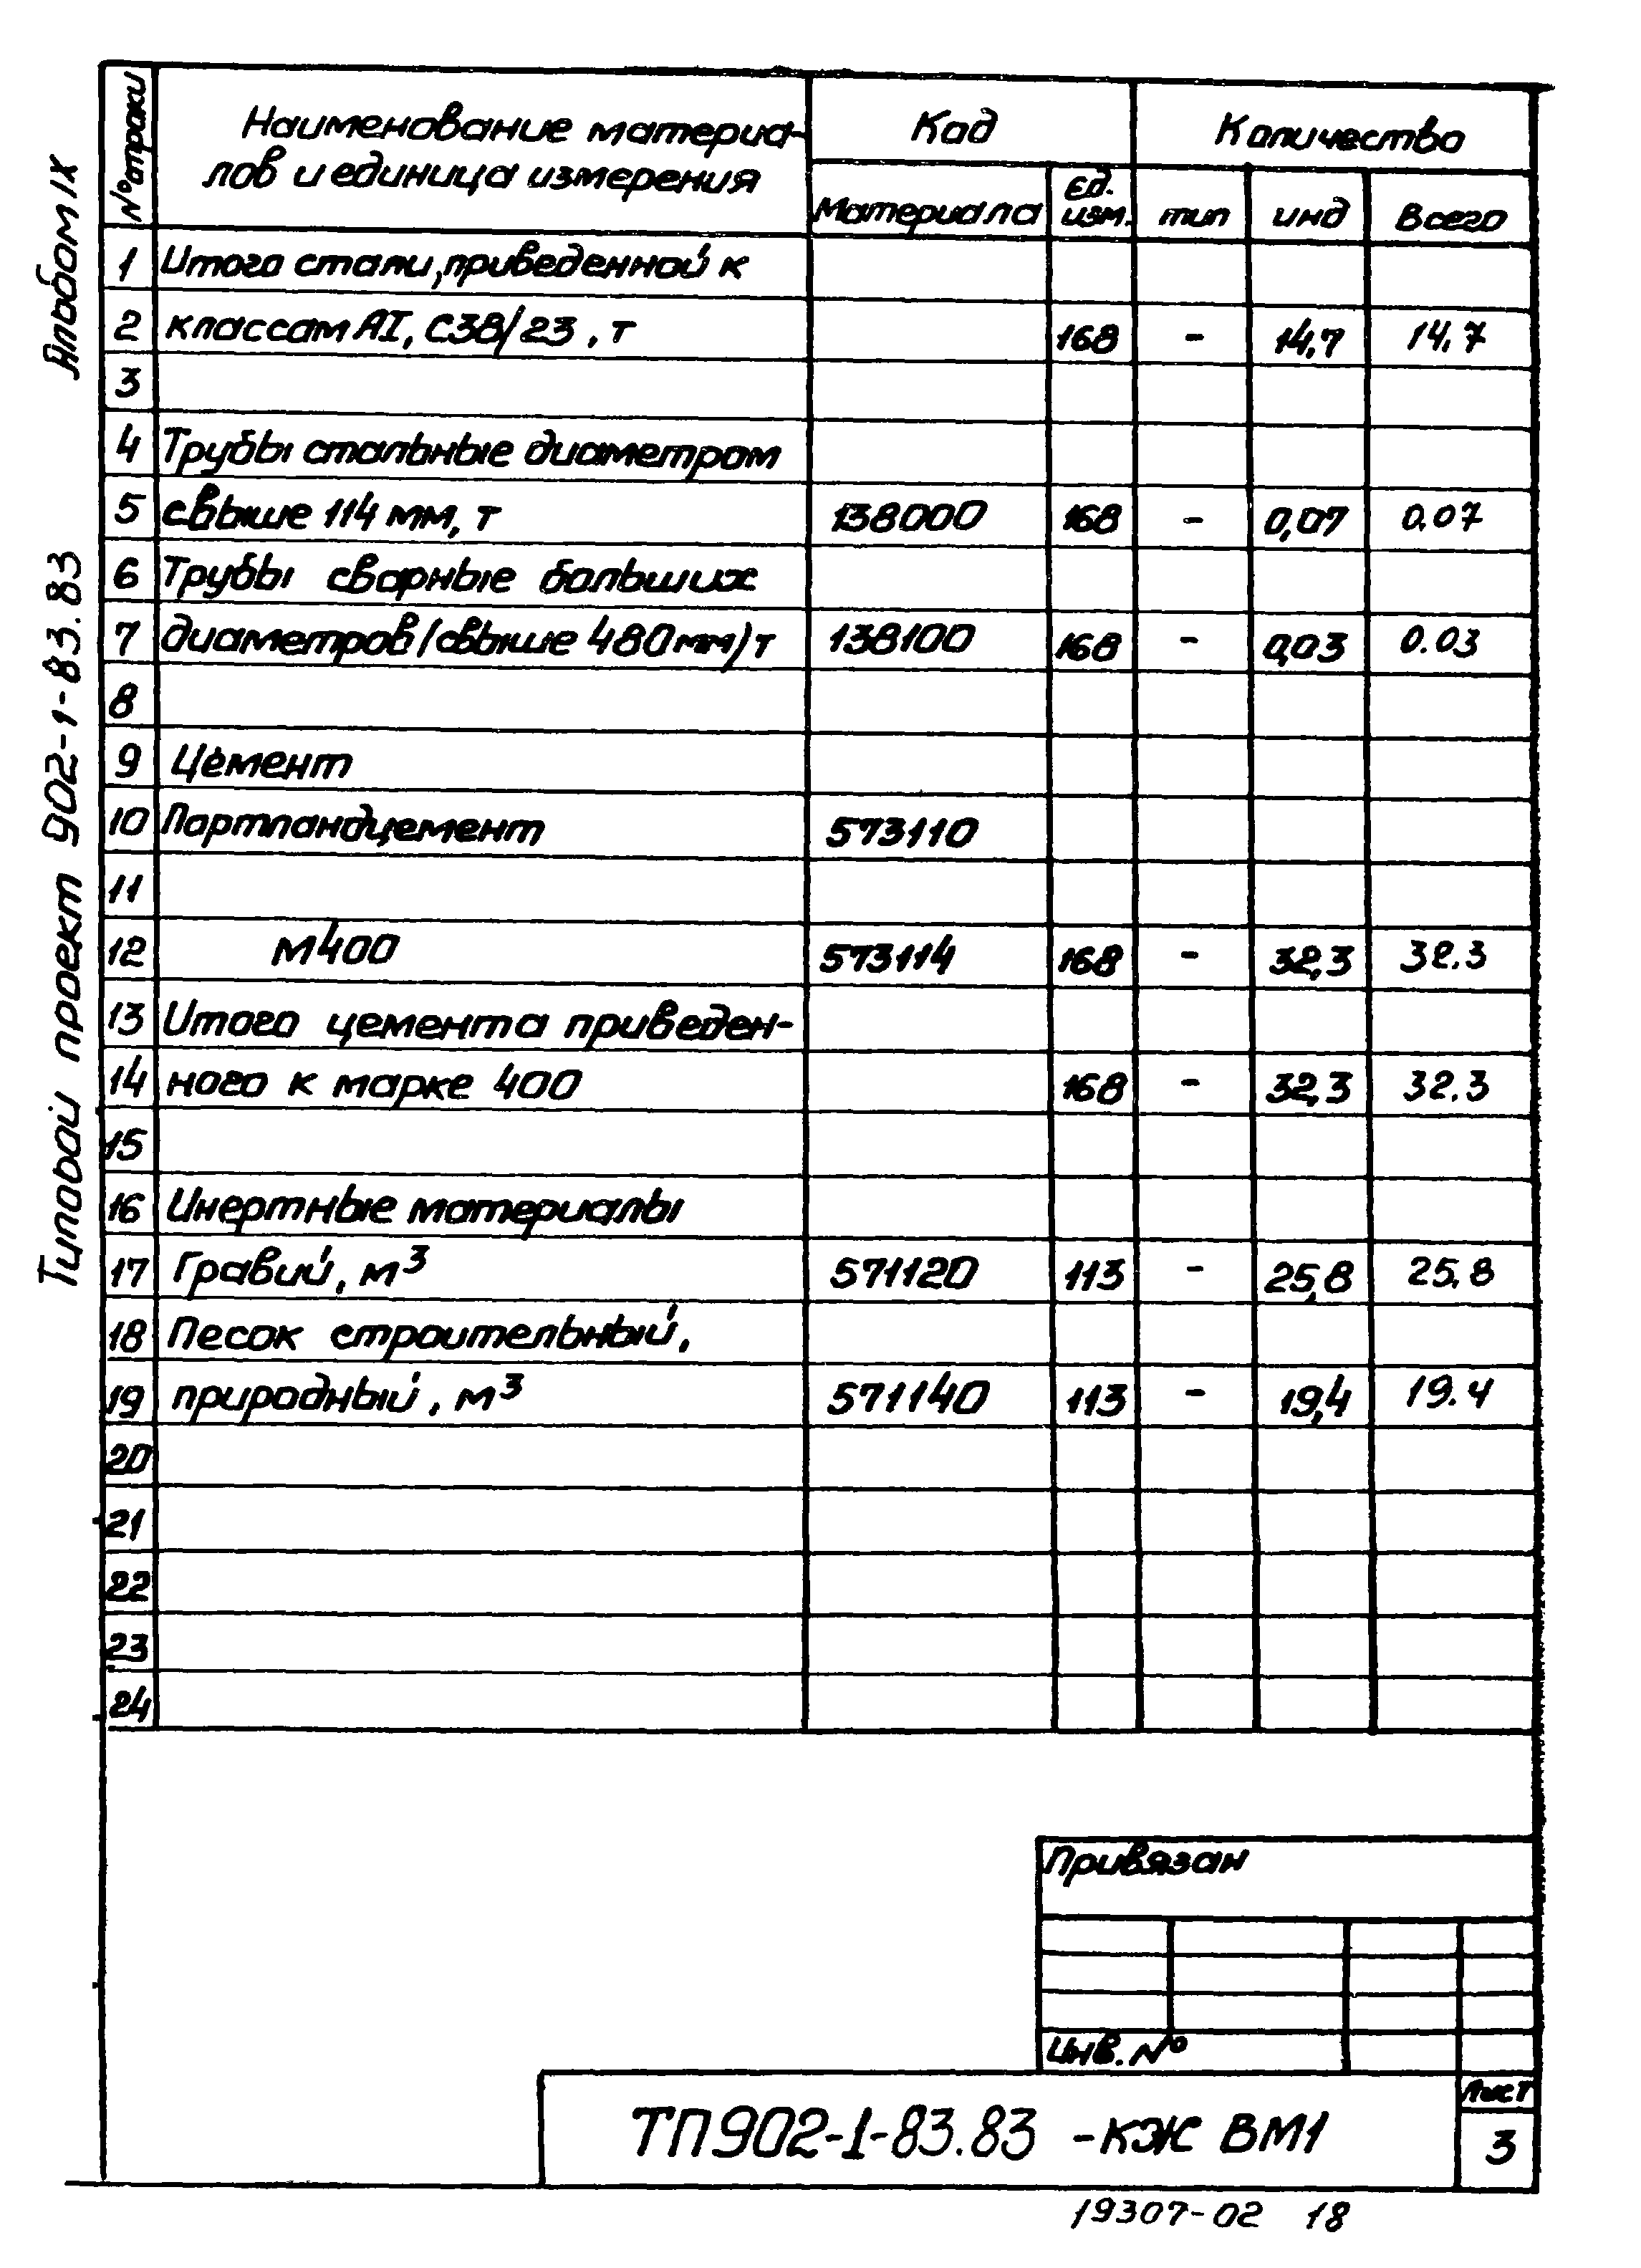 Альбом IX
Типовой проект 902-1-83.83
№ строки
Наименование материа-
лов и единица измерения
Код
Количество
Материала
Ед. изм.
тип
инд
Всего
1 Итого стали, приведенной к
2 классам АI, С38/23, т 168 - 14,7 14.7
3
4 Трубы стальные диаметром
5 свыше 114 мм, т 138000 168 - 0,07 0.07
6 Трубы сварные больших
7 диаметров (свыше 480 мм) т 138100 168 - 0,03 0.03
8
9 Цемент
10 Портландцемент 573110
11
12 М400 573114 168 - 32,3 32.3
13 Итого цемента приведен-
14 ного к марке 400 168 - 32,3 32.3
15
16 Инертные материалы
17 Гравий, м³ 571120 113 - 25,8 25.8
18 Песок строительный,
19 природный, м³ 571140 113 - 19,4 19.4
20
21
22
23
24
Привязан
Инв. №
ТП 902-1-83.83 -КЖ ВМ1
Лист
3
19307-02 18